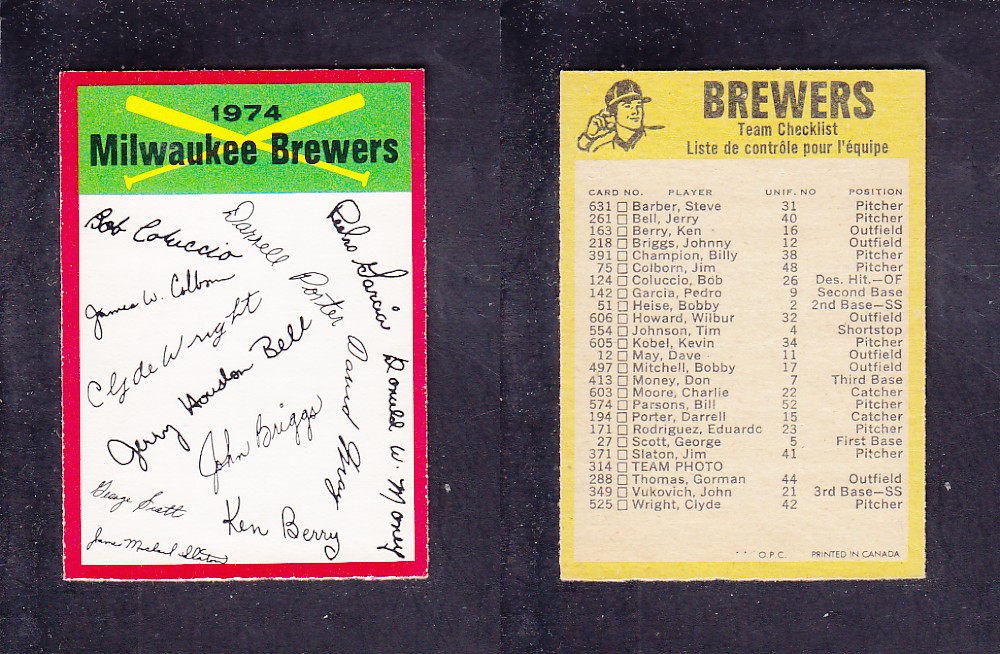 1974
Milwaukee Brewers
Bob Coluccio
Darrell Porter
Pedro Garcia
James W. Colborn
Clyde Wright
Jerry Houston Bell
David May
Donald W. Money
John Briggs
George Scott
Ken Berry
James Michael Slaton
BREWERS
Team Checklist
Liste de contrôle pour l'équipe
CARD NO. PLAYER UNIF. NO POSITION
631 □ Barber, Steve 31 Pitcher
261 □ Bell, Jerry 40 Pitcher
163 □ Berry, Ken 16 Outfield
218 □ Briggs, Johnny 12 Outfield
391 □ Champion, Billy 38 Pitcher
75 □ Colborn, Jim 48 Pitcher
124 □ Coluccio, Bob 26 Des. Hit.—OF
142 □ Garcia, Pedro 9 Second Base
51 □ Heise, Bobby 2 2nd Base—SS
606 □ Howard, Wilbur 32 Outfield
554 □ Johnson, Tim 4 Shortstop
605 □ Kobel, Kevin 34 Pitcher
12 □ May, Dave 11 Outfield
497 □ Mitchell, Bobby 17 Outfield
413 □ Money, Don 7 Third Base
603 □ Moore, Charlie 22 Catcher
574 □ Parsons, Bill 52 Pitcher
194 □ Porter, Darrell 15 Catcher
171 □ Rodriguez, Eduardo 23 Pitcher
27 □ Scott, George 5 First Base
371 □ Slaton, Jim 41 Pitcher
314 □ TEAM PHOTO
288 □ Thomas, Gorman 44 Outfield
349 □ Vukovich, John 21 3rd Base—SS
525 □ Wright, Clyde 42 Pitcher
O.P.C. PRINTED IN CANADA